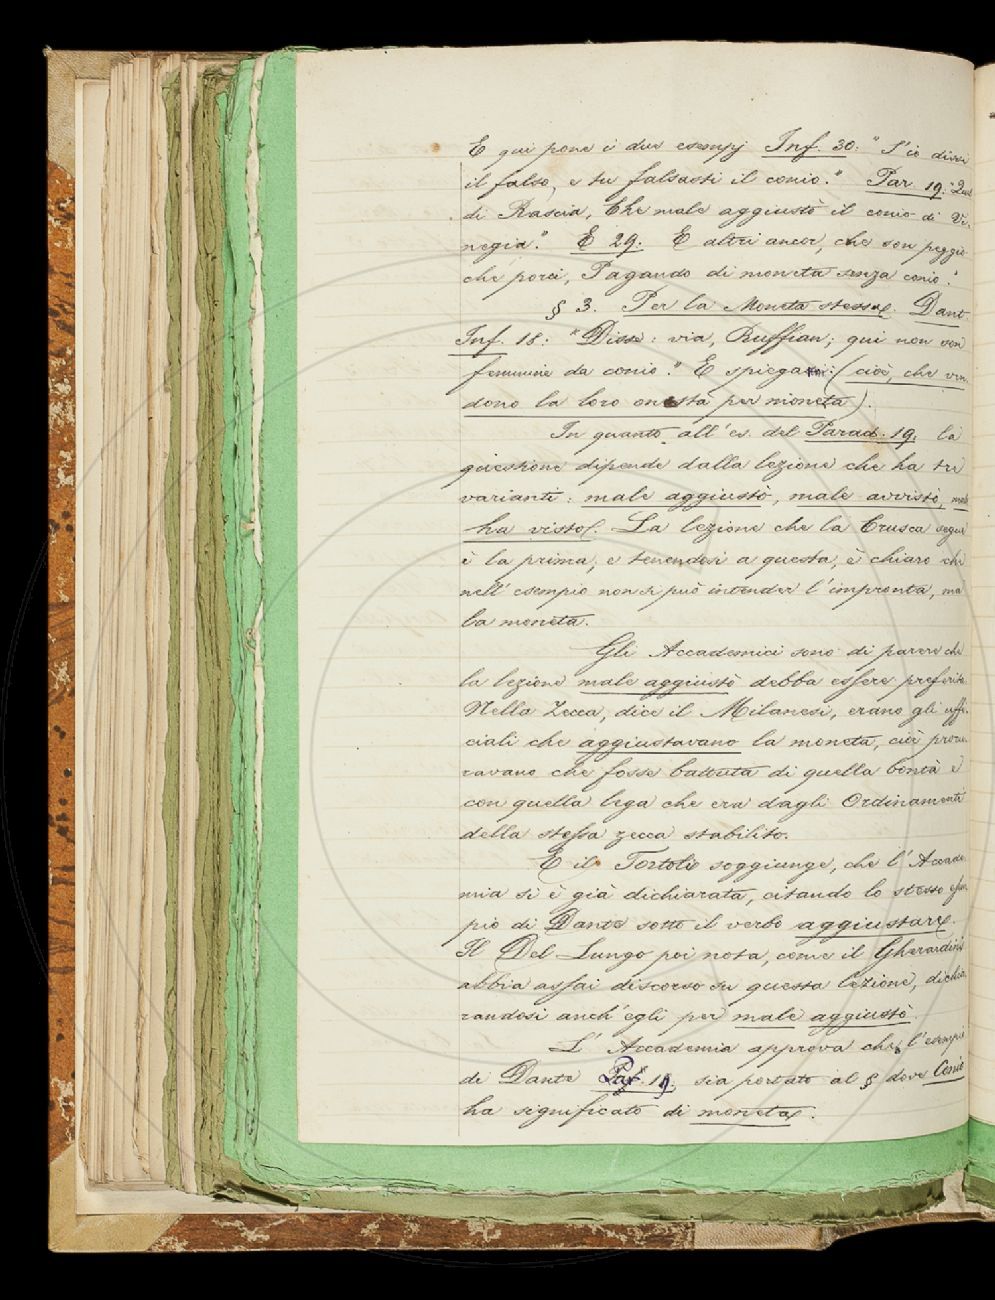 E qui pone i due esempj Inf. 30: "S'io dissi
il falso, e tu falsasti il conio." Par 19: "Quel
di Rascia, Che male aggiustò il conio di Vi-
negia." E 29. E altri ancor, che son peggio
che porci, Pagando di moneta senza conio."
§ 3. Per la Moneta stessa. Dant.
Inf. 18: "Disse: via, Ruffian; qui non son
femmine da conio." E spiega: (cioè, che ven-
dono la loro onestà per moneta).
In quanto all'es. del Parad. 19. la
questione dipende dalla lezione che ha tre
varianti: male aggiustò, male avvistò, mal
ha visto. La lezione che la Crusca segue
è la prima, e tenendosi a questa, è chiaro che
nell'esempio non si può intender l'impronta, ma
la moneta.
Gli Accademici sono di parere che
la lezione male aggiustò debba essere preferita.
Nella Zecca, dice il Milanesi, erano gli uffi-
ciali che aggiustavano la moneta, cioè procu-
ravano che fosse battuta di quella bontà e
con quella lega che era dagli Ordinamenti
della stessa zecca stabilito.
E il Tortoli soggiunge, che l'Accade-
mia si è già dichiarata, citando lo stesso esem-
pio di Dante sotto il verbo aggiustare.
Il Del Lungo poi nota, come il Gherardini
abbia assai discorso su questa lezione, dichia-
randosi anch'egli per male aggiustò.
L'Accademia approva che l'esempio
di Dante Par. 19. sia portato al § dove Conio
ha significato di moneta.